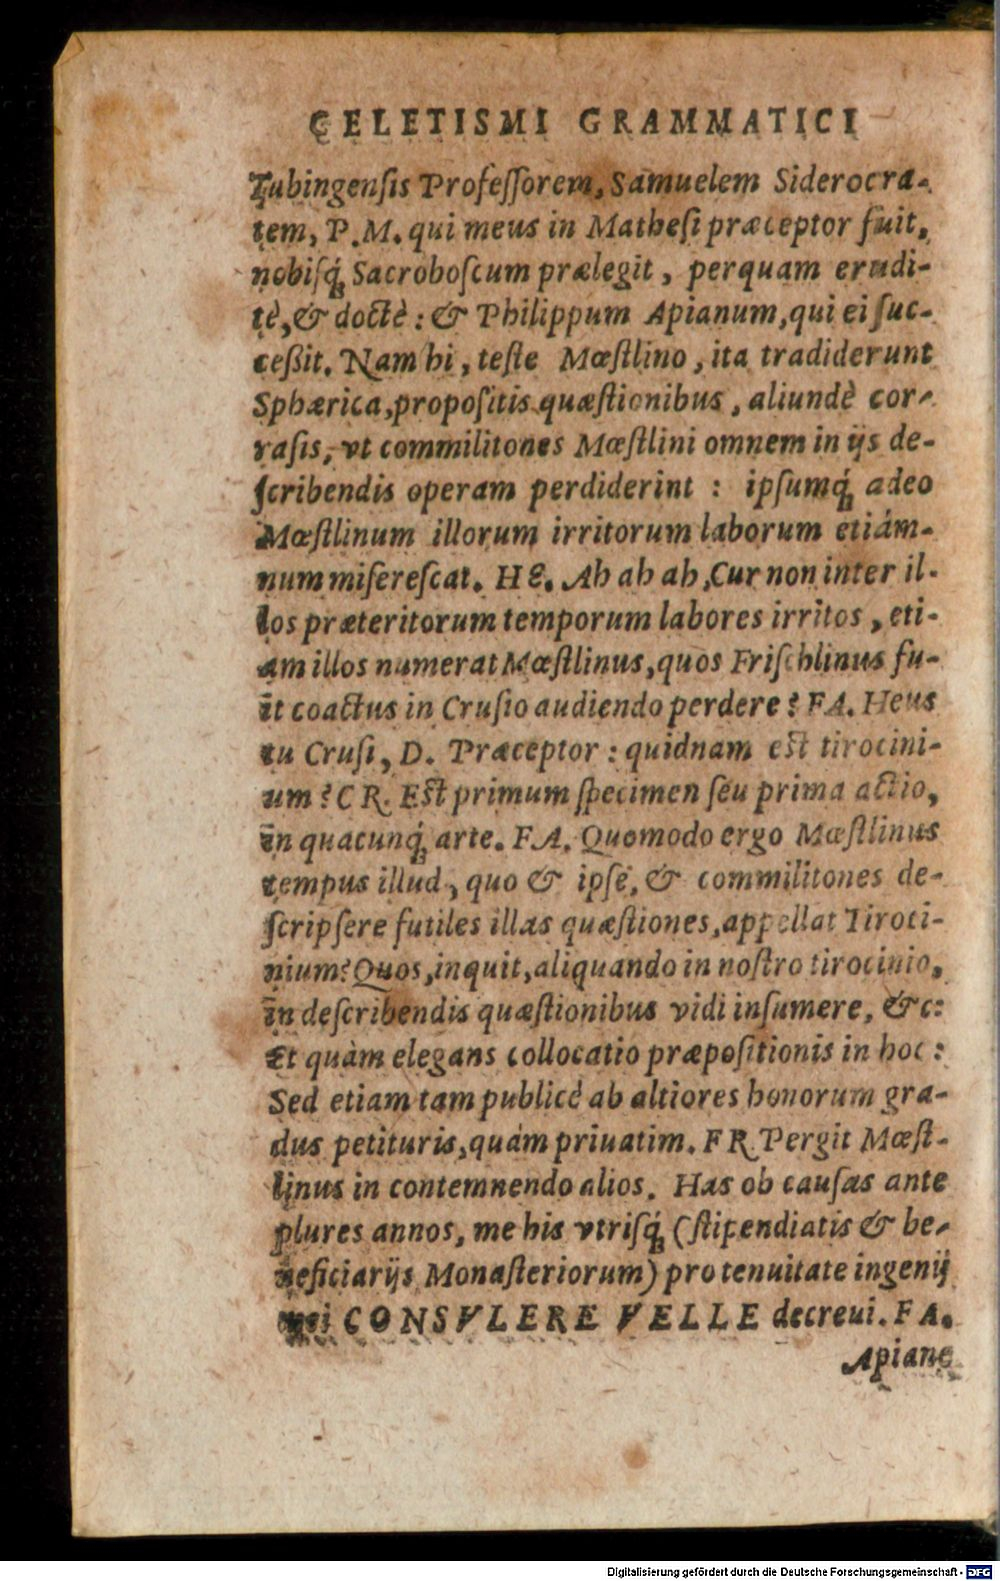 CELETISMI GRAMMATICI
Tubingensis Professorem, Samuelem Siderocra-
tem, P. M. qui meus in Mathesi præceptor fuit,
nobisq́; Sacroboscum prælegit, perquam erudi-
tè, & doctè: & Philippum Apianum, qui ei suc-
ceßit. Nam hi, teste Mœstlino, ita tradiderunt
Sphærica, propositis quæstionibus, aliundè cor-
rasis, vt commilitones Mœstlini omnem in ijs de-
scribendis operam perdiderint: ipsumq́; adeo
Mœstlinum illorum irritorum laborum etiám-
num miserescat. HE. Ah ah ah, Cur non inter il-
los præteritorum temporum labores irritos, eti-
am illos numerat Mœstlinus, quos Frischlinus fu-
it coactus in Crusio audiendo perdere? FA. Heus
tu Crusi, D. Præceptor: quidnam est tirocini-
um? CR. Est primum specimen seu prima actio,
in quacunq́; arte. FA. Quomodo ergo Mœstlinus
tempus illud, quo & ipse, & commilitones de-
scripsere futiles illas quæstiones, appellat Tiroci-
nium? Quos, inquit, aliquando in nostro tirocinio,
in describendis quæstionibus vidi insumere, &c:
Et quàm elegans collocatio præpositionis in hoc:
Sed etiam tam publicè ab altiores honorum gra-
dus petituris, quám priuatim. FR. Pergit Mœst-
linus in contemnendo alios. Has ob causas ante
plures annos, me his vtrisq́; (stipendiatis & be-
neficiarijs Monasteriorum) pro tenuitate ingenij
mei CONSVLERE VELLE decreui. FA.
Apiane
Digitalisierung gefördert durch die Deutsche Forschungsgemeinschaft - DFG